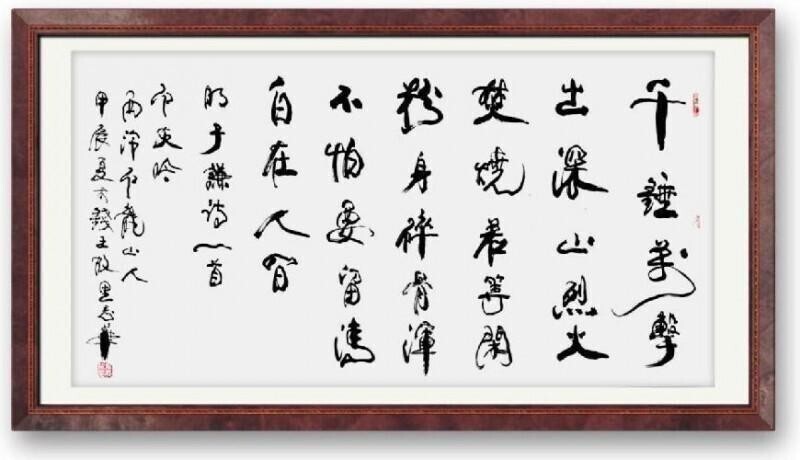 千錘萬擊
出深山烈火
焚燒若等閑
粉身碎骨渾
不怕要留清
白在人間
明于謙詩一首
石灰吟
西泠石龍山人
甲辰夏於錢王故里志華